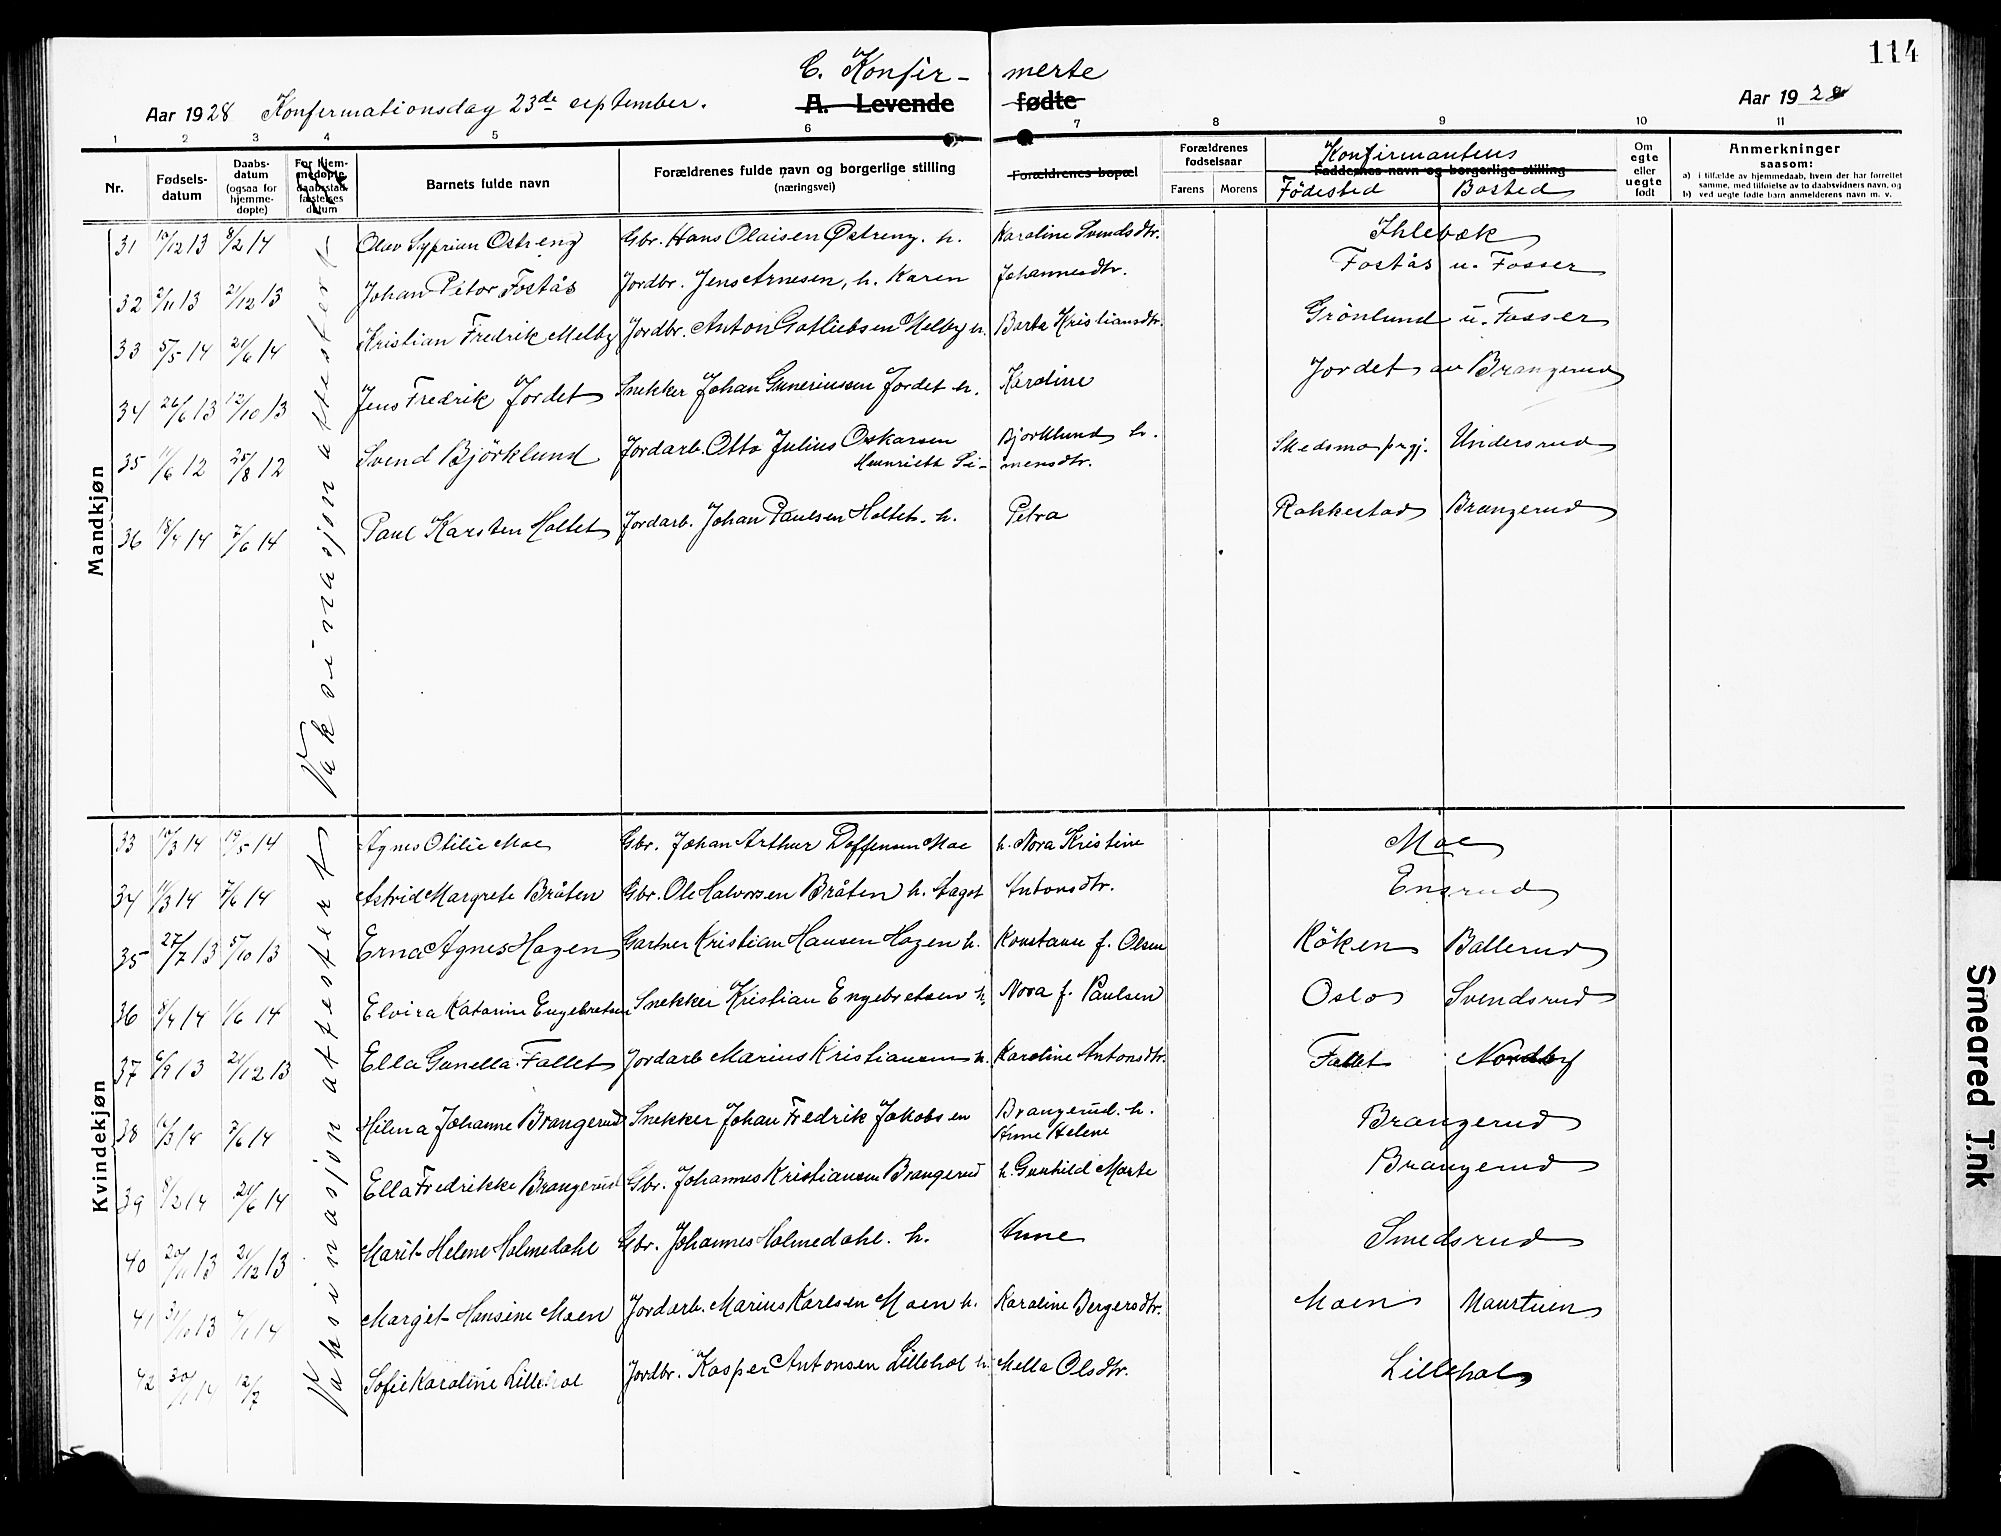 114
C. Konfir- merte
Aar 1928 Konfirmationsdag 23de september.
A. Levende fødte
Aar 1928
1 2 3 4 5 6 7 8 9 10 11
Nr.
Fødsels-datum
Daabs-datum (ogsaa for hjemme-døpte)
For hjem-medøpte daabsstad-fæstelses datum
Barnets fulde navn
Forældrenes fulde navn og borgerlige stilling (næringsvei)
Forældrenes bopæl
Forældrenes fødselsaar
Farens Morens
Konfirmantens
Faddernes navn og borgerlige stilling
Födested Bosted
Om egte eller uegte født
Anmerkninger
saasom:
a) i tilfælde av hjemmedaab, hvem der har forrettet samme, med tilføielse av to daabsvidners navn, og
b) ved uegte fødte barn anmelderens navn m. v.
Mandkjøn
Vaksinasjon attestert
31 10/12 13 8/2 14 Olav Syprian Ostreng Gbr. Hans Olaisen Østreng. h. Karoline Svendsdtr. Ihlebæk
32 2/11 13 21/12 13 Johan Petor Fostås Jordbr. Jens Arnesen, h. Karen Johannesdtr. Fostås u. Fosser
33 5/5 14 21/6 14 Kristian Fredrik Melby Jordbr. Anton Gotliebsen Melby h. Berta Kristiansdtr. Grönlund u. Fosser
34 26/6 13 12/10 13 Jens Fredrik Jordet Snekker Johan Guneriussen Jordet h. Karoline Jordet av Brangerud
35 11/6 12 25/8 12 Svend Björklund Jordarb. Otto Julius Oskarsen Bjorklund h.
Henriette Si- mensdtr. Skedsmo prgj. Undersrud
36 18/4 14 7/6 14 Paul Karsten Holtet Jordarb. Johan Paulsen Holtet. h. Petra Rakkestad Brangerud
Kvindekjøn
Vaksinasjon attestert
33 10/3 14 19/5 14 Agnes Otilie Moe Gbr. Johan Arthur Doffensen Moe h. Nora Kristine Moe
34 11/3 14 7/6 14 Astrid Margrete Bråten Gbr. Ole Halvorsen Bråten h. Hagot Antonsdtr. Ensrud
35 27/7 13 5/10 13 Erna Agnes Hagen Gartner Kristian Hansen Hagen h. Konstanse f. Olsen Röken Ballerud
36 8/4 14 1/6 14 Elvira Katarine Engebretsen Snekker Kristian Engebretsen h. Nora f. Paulsen Oslo Svendsrud
37 6/9 13 21/12 13 Ella Gunella Fallet Jordarb Marius Kristiansen h. Karoline Antonsdtr. Fallet Nordby
38 16/3 14 7/6 14 Hilma Johanne Brangerud Snekker Johan Fredrik Jakobsen Brangerud. h.
Anne Helene Brangerud
39 8/2 14 21/6 14 Ella Fredrikke Brangerud Gbr. Johannes Kristiansen Brangerud h. Gunhild Marte Brangerud
40 20/11 13 21/12 13 Marit Helene Holmedahl Gbr. Johannes Holmedahl. h. Anne Smedsrud
41 31/10 13 4/1 14 Margit Hansine Moen Jordarb. Marius Karlsen Moen h. Karoline Bergersdtr. Moen Maurtuen
42 30/1 14 12/7 Sofie Karoline Lillehol Jordbr. Kasper Antonsen Lillehol h. Mella Olsdtr. Lillehol
Smeared Ink